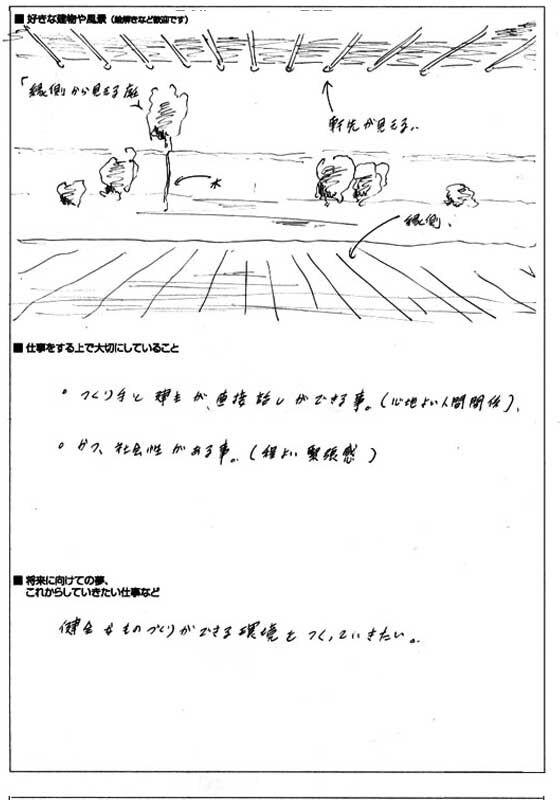 ■ 好きな建物や風景（絵解きなど歓迎です）
「縁側から見える庭」
軒先が見える。
木
縁側、
■ 仕事をする上で大切にしていること
○ つくり手と建主が、直接話しができる事。（心地よい人間関係）、
○ かつ、社会性がある事。（程よい緊張感）
■ 将来に向けての夢、
これからしていきたい仕事など
健全なものづくりができる環境をつくっていきたい。